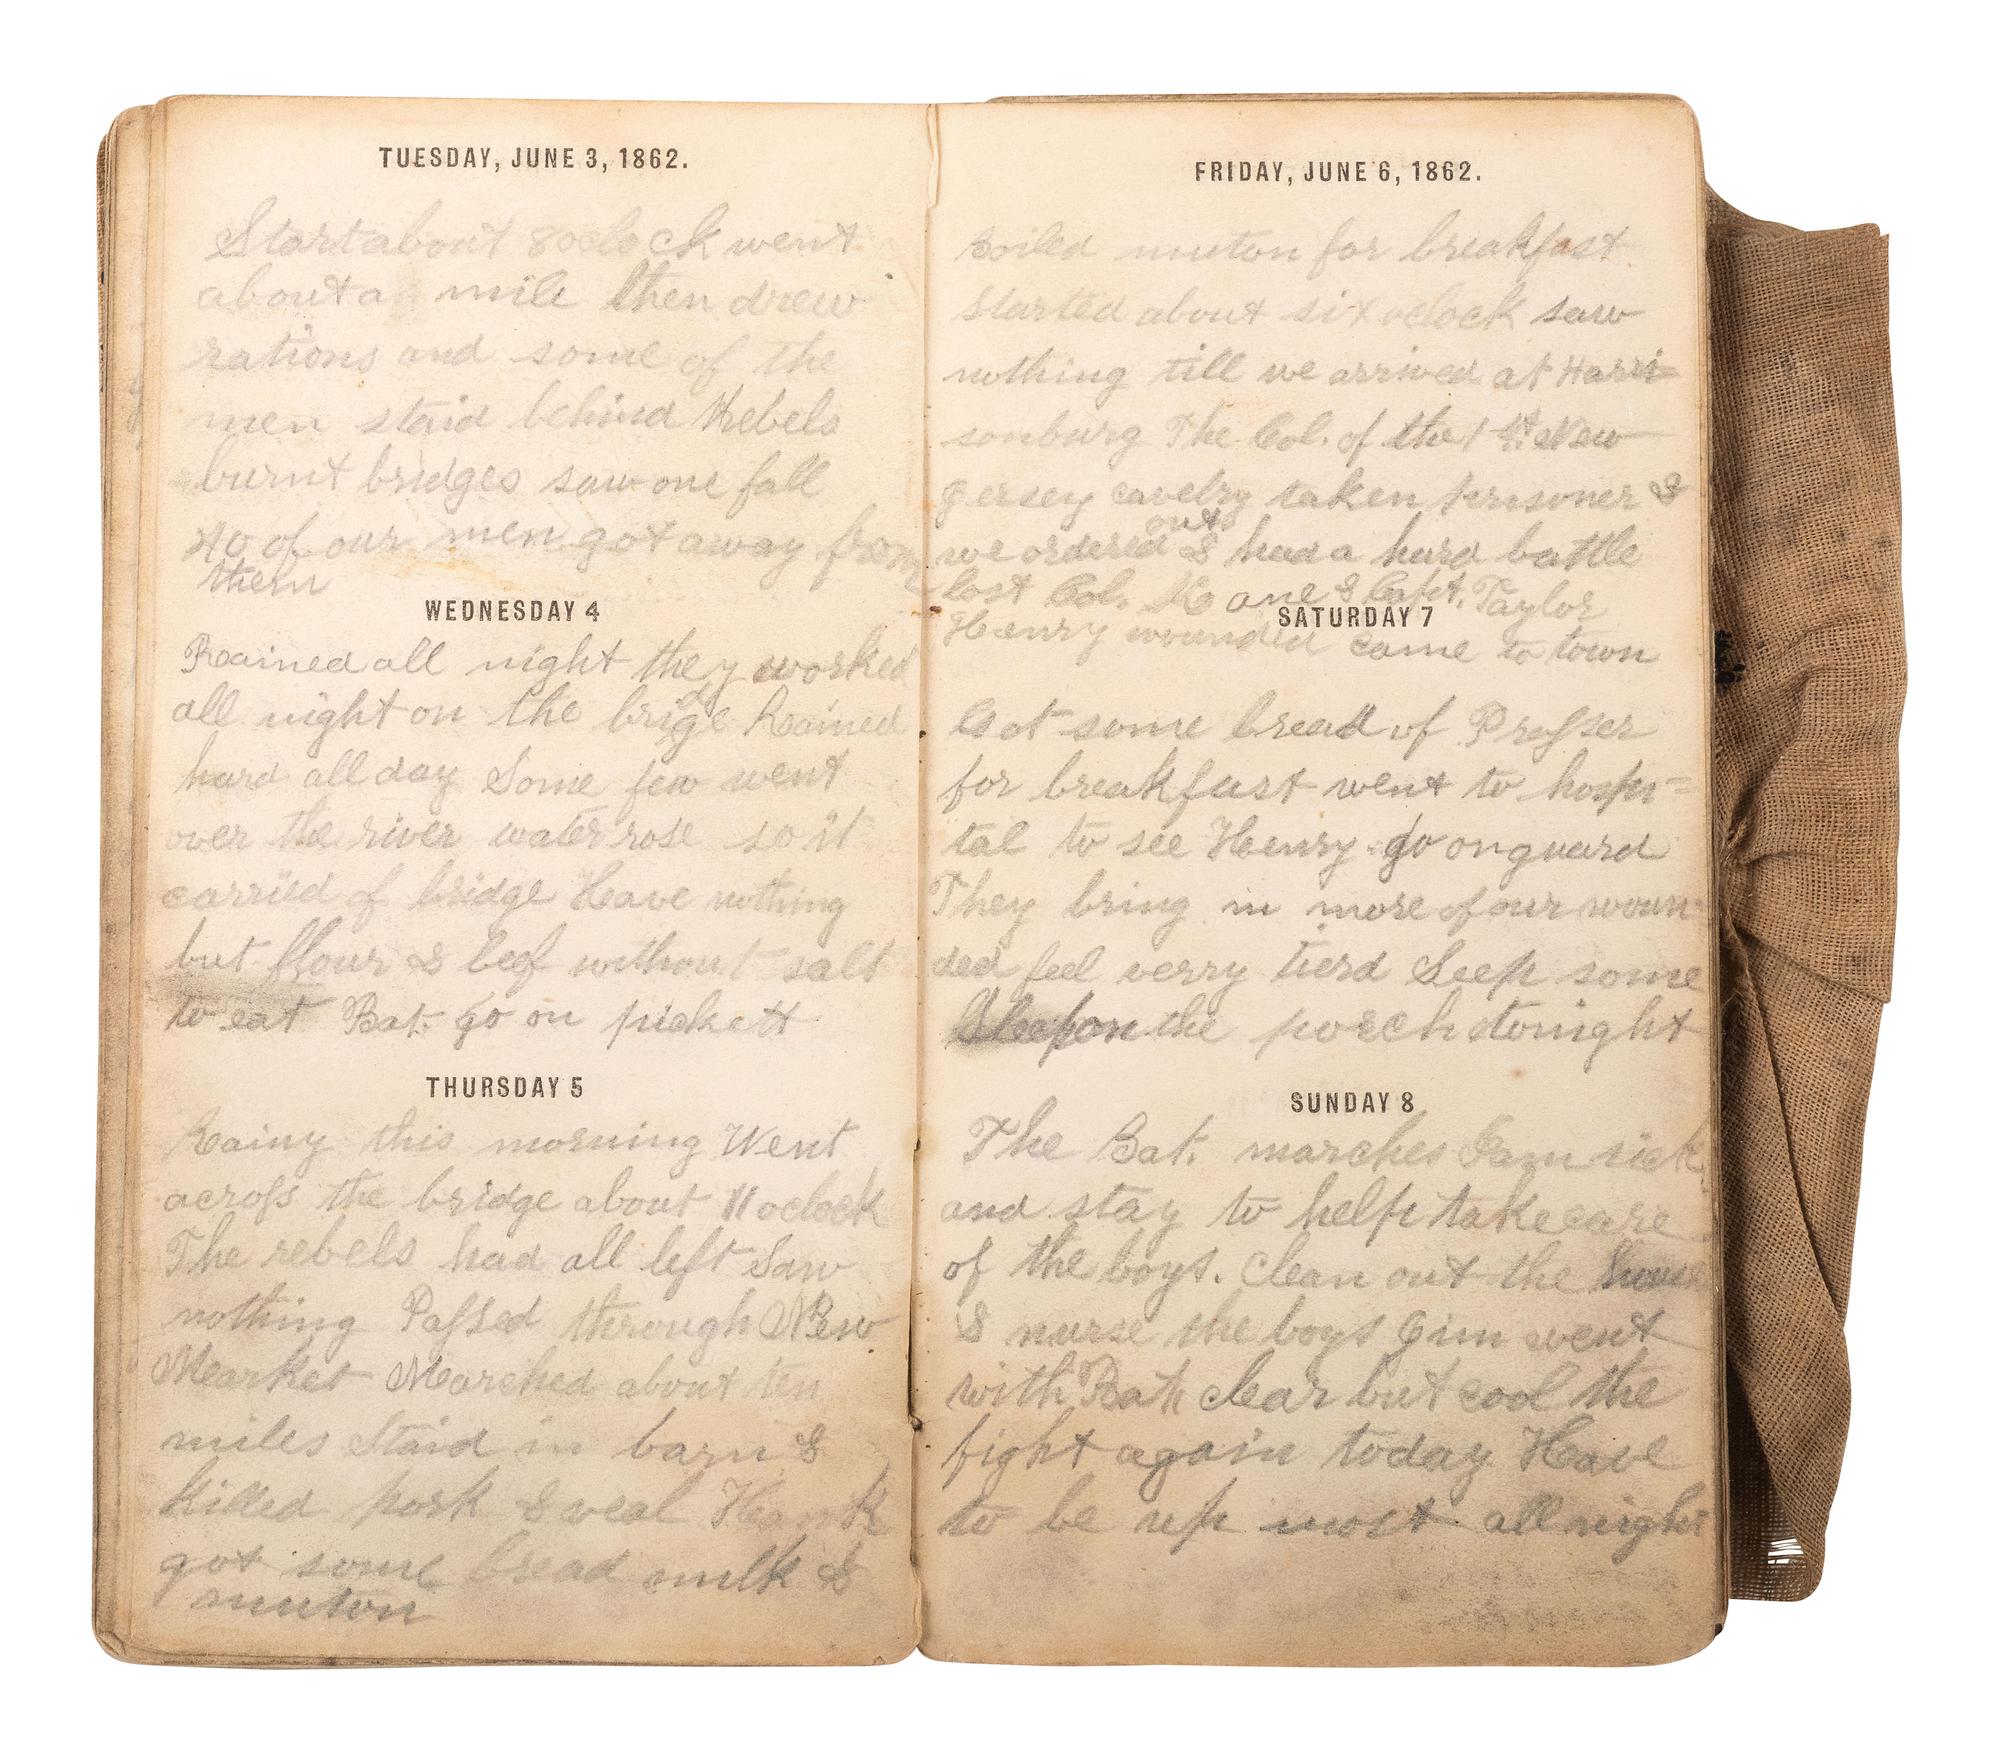 TUESDAY, JUNE 3, 1862.
Start about 8 oclock went
about a mile then drew
rations and some of the
men staid behind Rebels
burnt bridges saw one fall
40 of our men got away from
them
WEDNESDAY 4
Rained all night they worked
all night on the bridge Rained
hard all day Some few went
over the river water rose so it
carried of bridge Have nothing
but flour & beef without salt
to eat Bat. go on pickett
THURSDAY 5
Rainy this morning Went
across the bridge about 11 oclock
The rebels had all left Saw
nothing Passed through New
Market Marched about ten
miles Staid in barn &
killed pork & veal Hank
got some bread milk &
muton
FRIDAY, JUNE 6, 1862.
Boiled muton for breakfast
Started about six oclock saw
nothing till we arrived at Harri=
sonburg The Col. of the 1st. New
Jersey cavelry taken prisoner &
we ordered out & had a hard battle
lost Col. Kane & Capt. Taylor
SATURDAY 7
Henry wounded came to town
Got some bread of Proffser
for breakfast went to hospi=
tal to see Henry go on guard
They bring in more of our woun=
ded feel verry tierd Seep some
Sleep on the porch tonight
SUNDAY 8
The Bat. marches I am sick
and stay to help take care
of the boys. Clean out the house
& nurse the boys Jim went
with Bat. clear but cool the
fight again today Have
to be up most all night